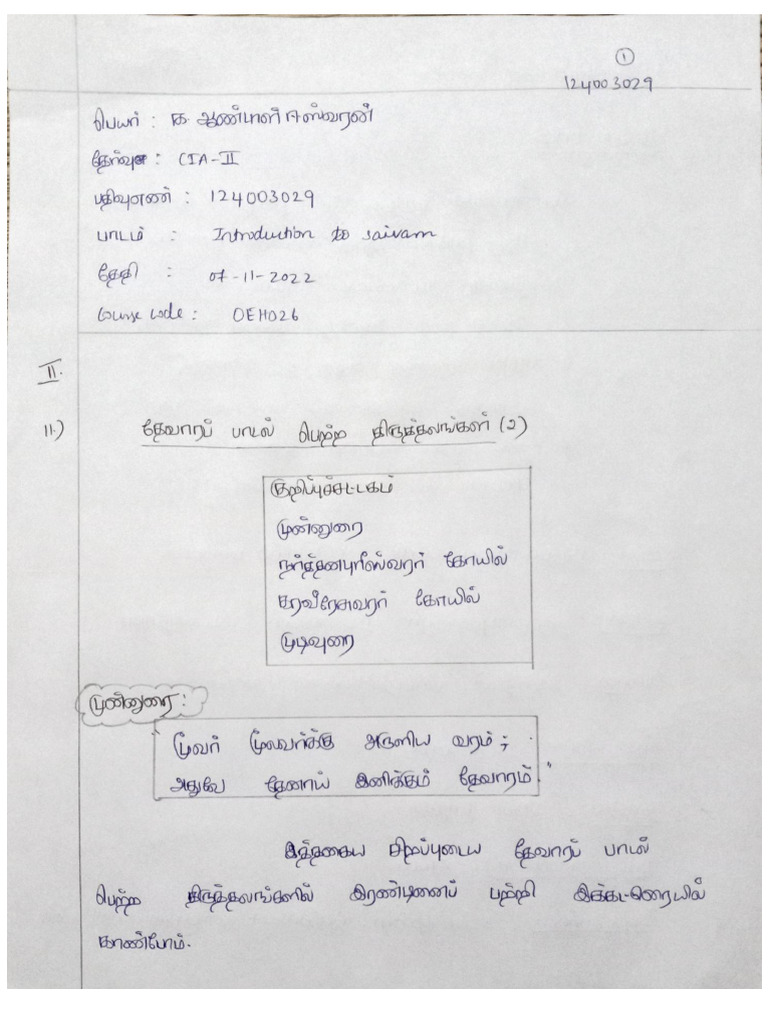 1
124003029
பெயர் : க. ஆண்டாள் ஈஸ்வரன்
தேர்வு : CIA-II
பதிவுஎண் : 124003029
பாடம் : Introduction to saivam
தேதி : 07-11-2022
Course code : OEH026
II.
11.) தேவாரப் பாடல் பெற்ற திருத்தலங்கள் (2)
குறிப்புச்சட்டகம்
முன்னுரை
நர்த்தனபுரீஸ்வரர் கோயில்
கரவீரேசுவரர் கோயில்
முடிவுரை
முன்னுரை :
"மூவர் மூலவர்க்கு அருளிய வரம் ;
அதுவே தேனாய் இனிக்கும் தேவாரம்."
இத்தகைய சிறப்புடைய தேவாரப் பாடல்
பெற்ற திருத்தலங்களில் இரண்டினைப் பற்றி இக்கட்டுரையில்
காண்போம்.